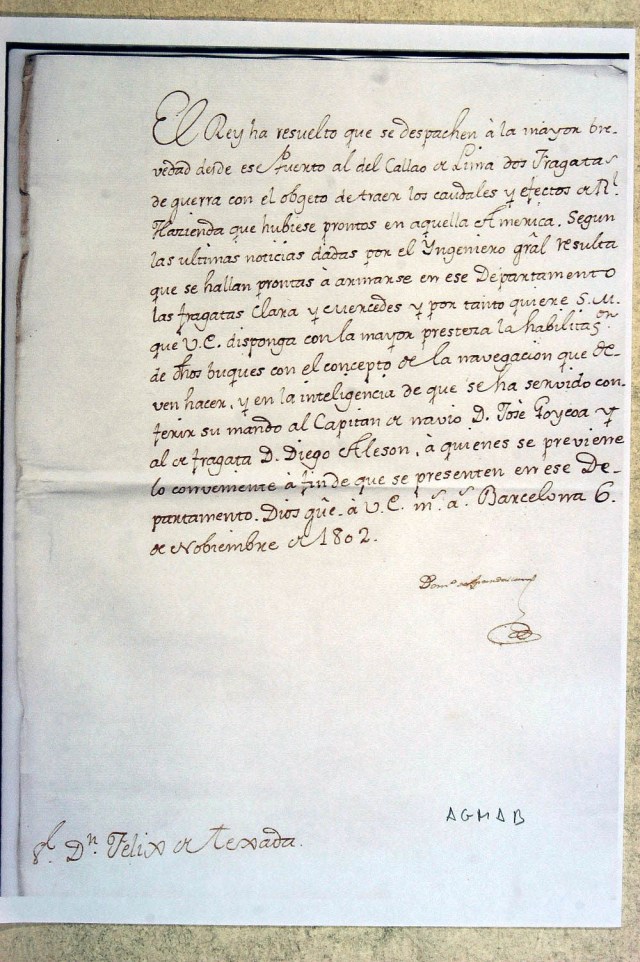 El Rey ha resuelto que se despachen à la mayor bre-
vedad desde ese Puerto al del Callao de Lima dos Fragatas
de guerra con el objeto de traer los caudales y efectos de Rl
Hazienda que hubiese prontos en aquella America. Segun
las ultimas noticias dadas por el Yngeniero gral resulta
que se hallan prontas à armarse en ese Departamento
las fragatas Clara y Mercedes y por tanto quiere S.M.
que V.E. disponga con la mayor presteza la habilitason
de dhos buques con el concepto de la navegación que de-
ven hacer, y en la inteligencia de que se ha servido con-
ferir su mando al Capitan de navio D. Josè Goycoa y
al de fragata D. Diego Aleson, à quienes se previene
lo conveniente à fin de que se presenten en ese De-
partamento. Dios güe. à V.E. ms. as. Barcelona 6.
de Nobiembre de 1802.
AGMAB
Dn. Felix de Texada.